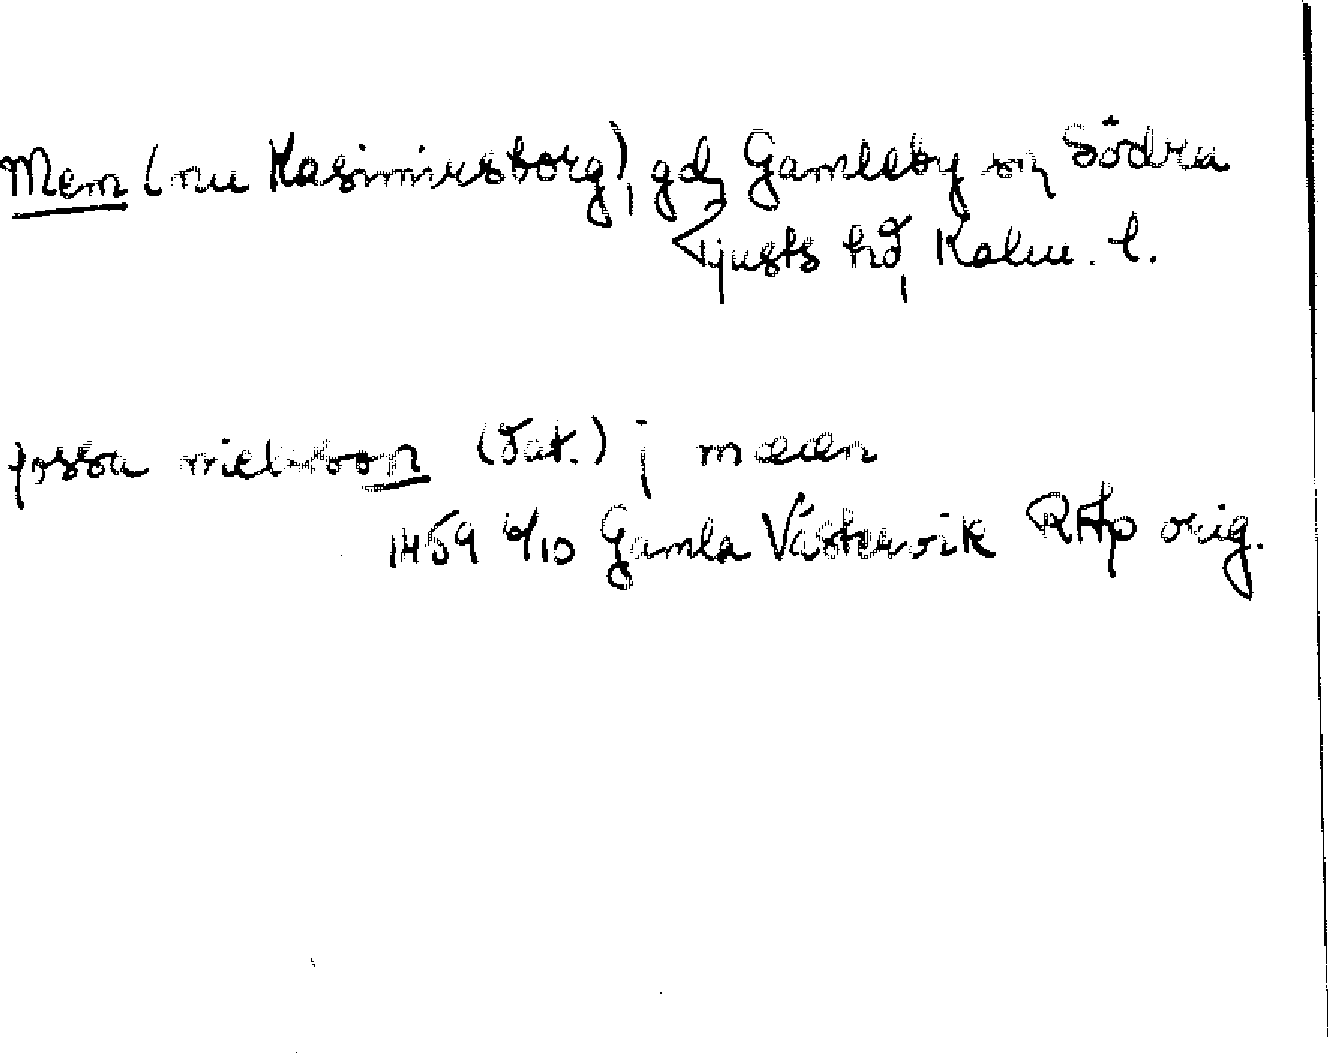 Mem (nu Kasimirsborg), gd, Gamleby sn, Södra
Tjusts hd, Kalm. l.
jossa nielsson (Dat.) j mææn
1459 6/10 Gamla Västervik RAp orig.